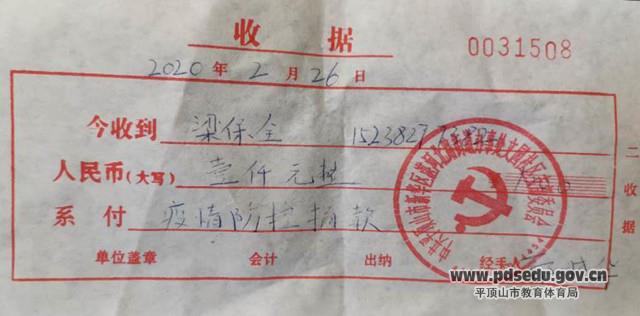 收据
0031508
2020年2月26日
今收到 梁保全
人民币(大写) 壹仟元整
系付 疫情防控捐款
单位盖章 会计 出纳 经手人
二收据
www.pdsedu.gov.cn
平顶山市教育体育局